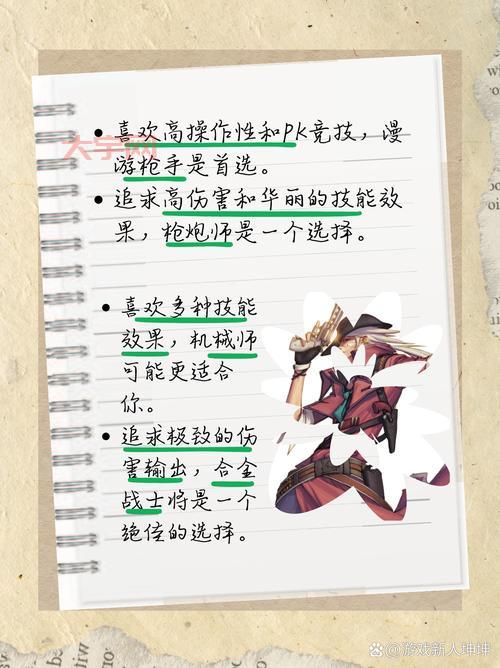 • 喜欢高操作性和PK竞技，漫
游枪手是首选。
• 追求高伤害和华丽的技能效
果，枪炮师是一个选择。
• 喜欢多种技能
效果，机械师
可能更适合
你。
• 追求极致的伤
害输出，合金
战士将是一个
绝佳的选择。
大宇网
@游戏新人坤坤